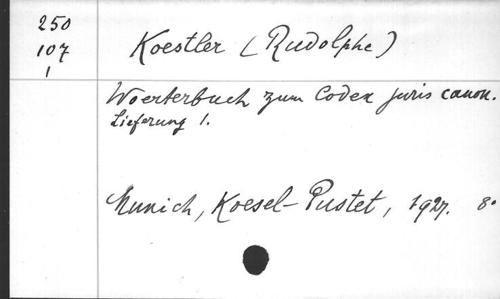 250
107
1
Koestler (Rudolphe)
Woerterbuch zum Codex juris canon.
Lieferung 1.
Munich, Koesel-Pustet, 1927. 8°